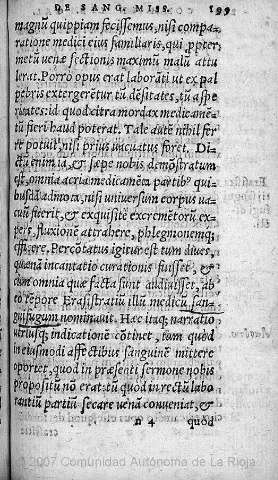 DE SANG. MISS. 199
magnū quippiam fecissemus, nisi compa-
ratione medici eius familiaris, qui ꝓpter
metū venæ sectionis maximū malū attu
lerat. Porrò opus erat laborāti ut ex pal
pebris extergeretur tū dēsitates, tū aspe
ritates: id quod citra mordax medicamē-
tū fieri haud poterat. Tale autē nihil fer
re potuit, nisi prius vacuatus foret. Di-
ctū enim id, & sæpe nobis demōstratum
q̄, omnia acria medicamēta partibꝰ qui-
busdā admota, nisi universum corpus va-
cuū fuerit, & exquisitè excremētorū ex-
pers, fluxionē attrahere, phlegmonemq́;
efficere. Percōtatus igitur est tum dives,
quænā incantatio curationis fuisset, &
cum omnia quæ facta sunt audivisset, ab
eo tēpore Erasistratiū illū medicū, san-
guifugum nominavit. Hæc itaq; narratio
utriusq; indicationē cōtinet, tum quòd
in eiusmodi affectibus sanguinē mittere
oportet, quod in præsenti sermone nobis
propositū nō erat: tū quòd in rectū labo
rantiū partiū secare venā conveniat, &
n 4 quòd
©2007 Comunidad Autónoma de La Rioja